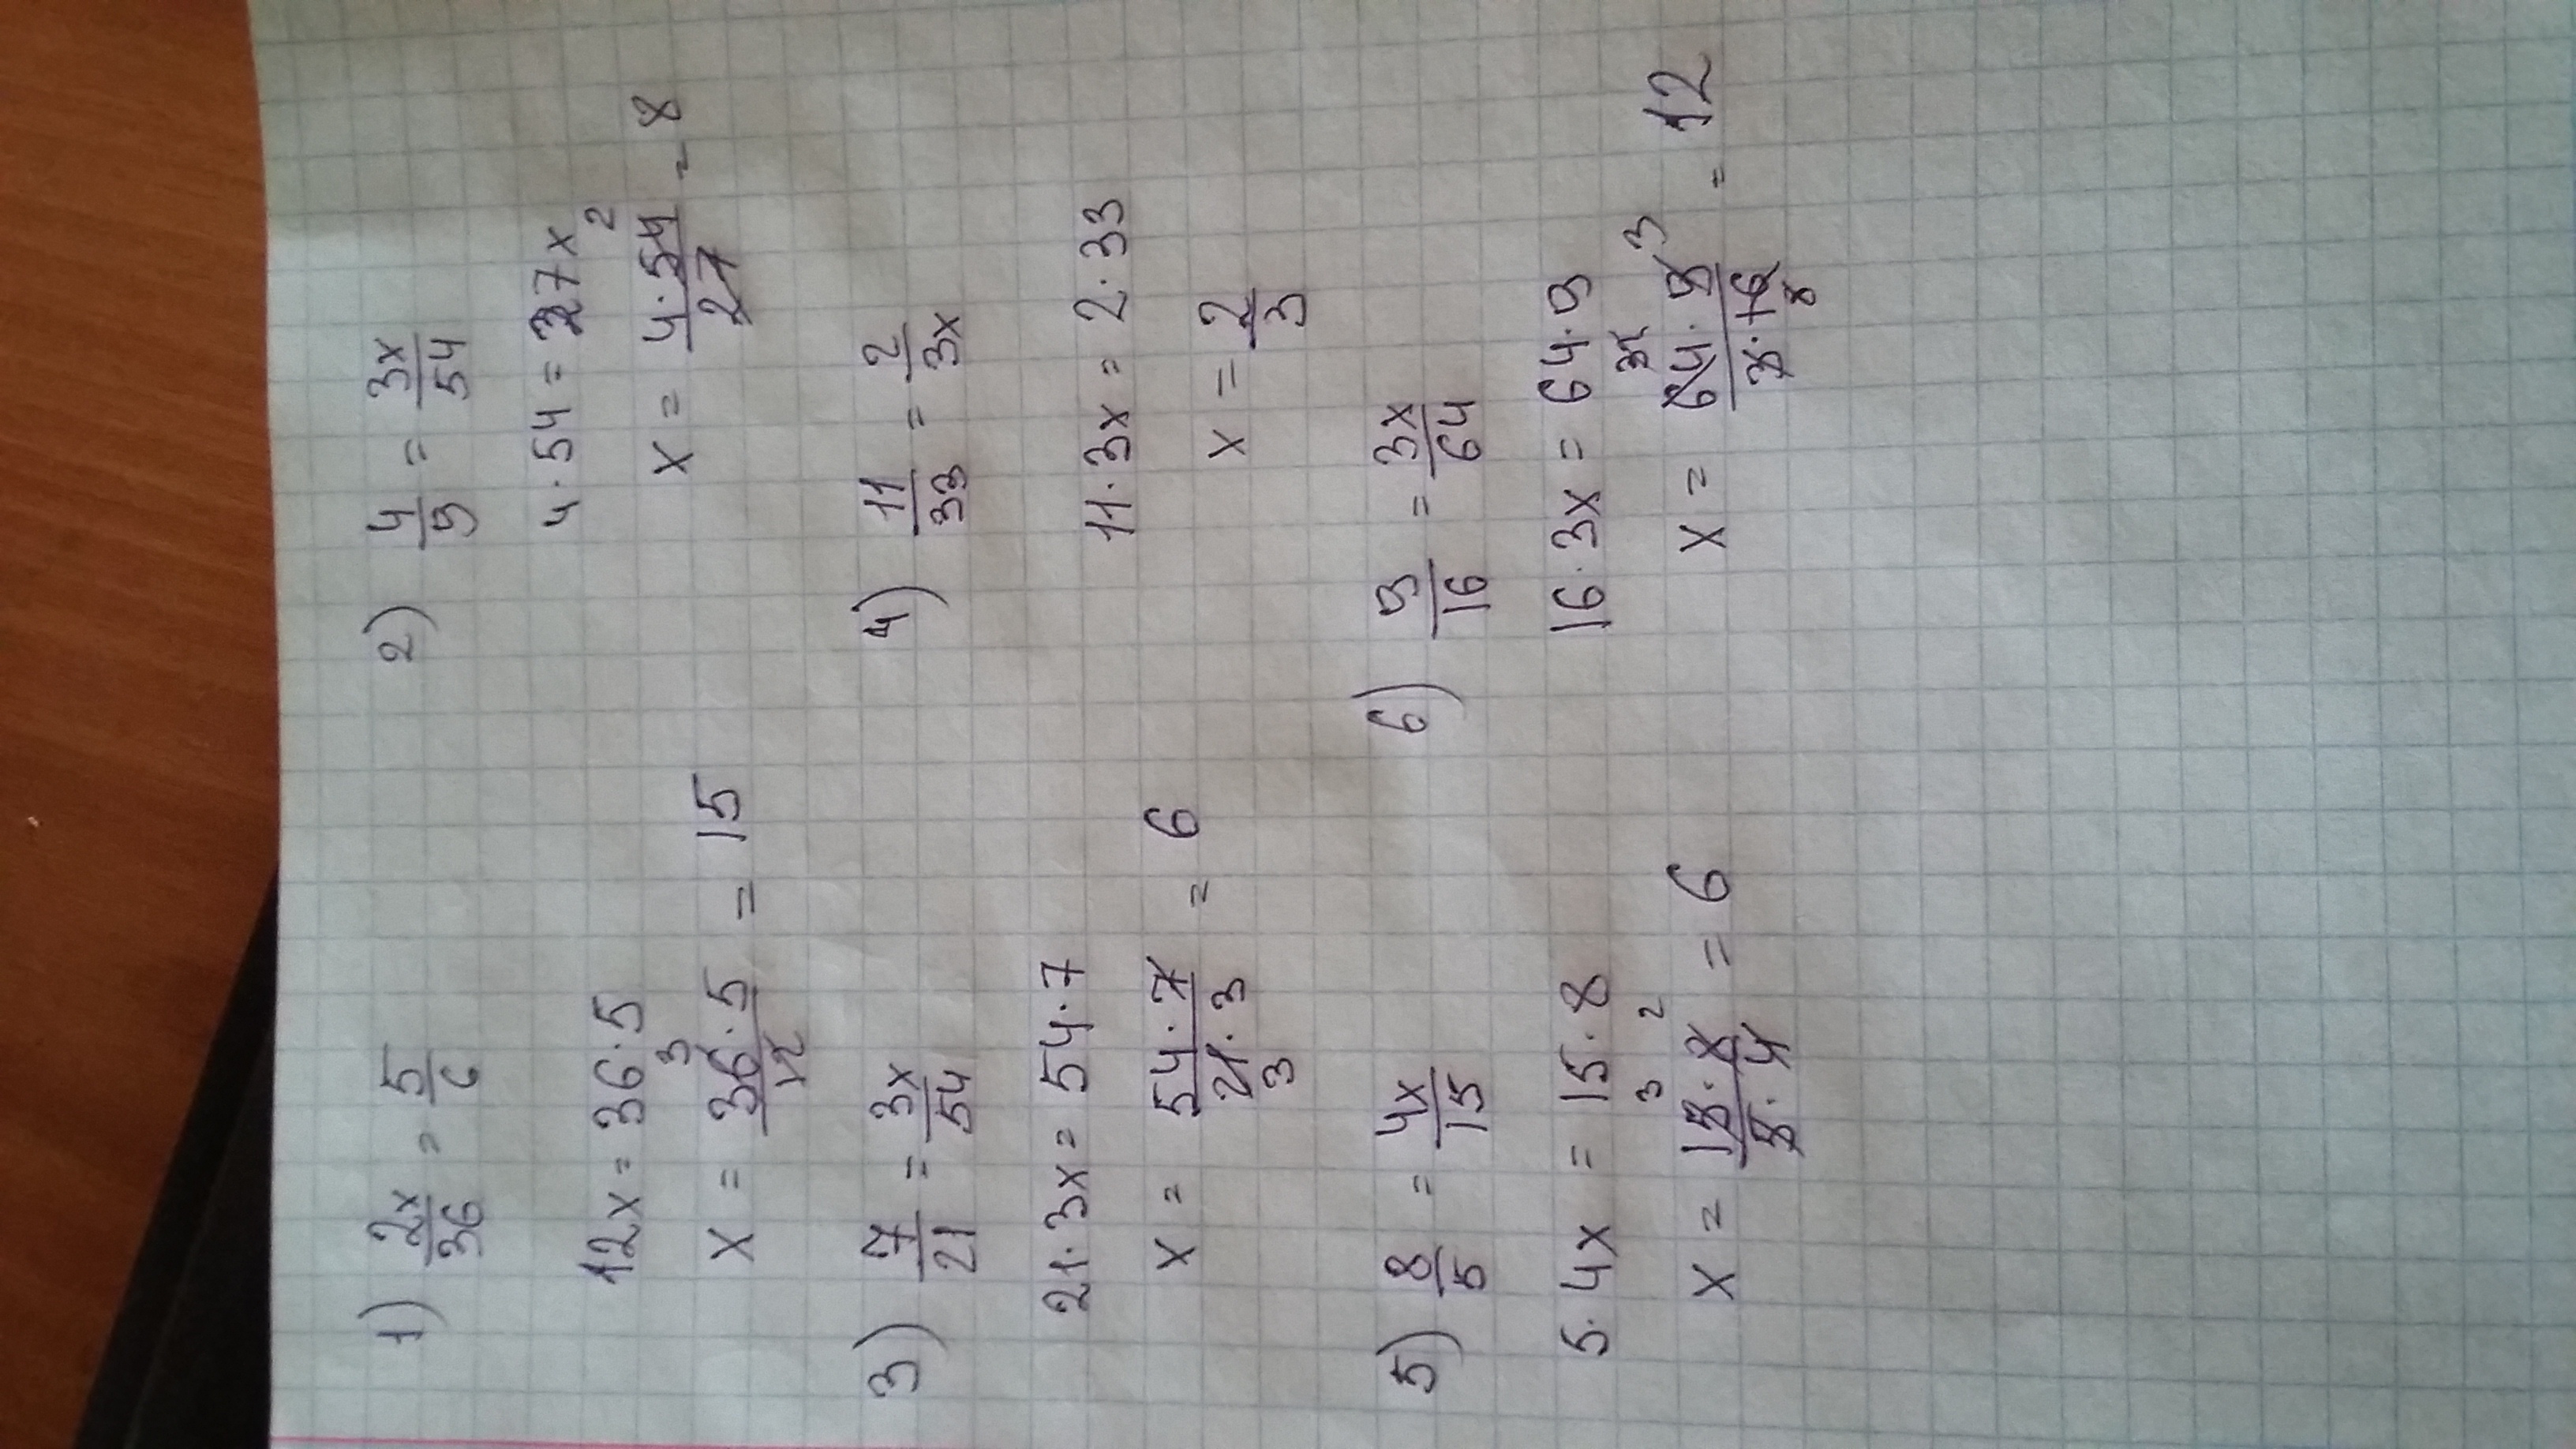 1) 2x/36 = 5/6
12x = 36·5
x = 36·5/12 = 15
2) 4/9 = 3x/54
4·54 = 27x
x = 4·54/27 = 8
3) 7/21 = 3x/54
21·3x = 54·7
x = 54·7/21·3 = 6
4) 11/33 = 2/3x
11·3x = 2·33
x = 2/3
5) 8/5 = 4x/15
5·4x = 15·8
x = 15·8/5·4 = 6
6) 9/16 = 3x/64
16·3x = 64·9
x = 64·9/3·16 = 12